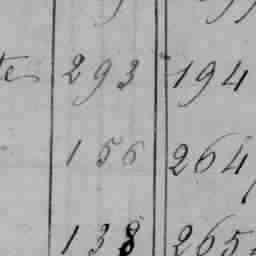 293 194
156 264
138 265